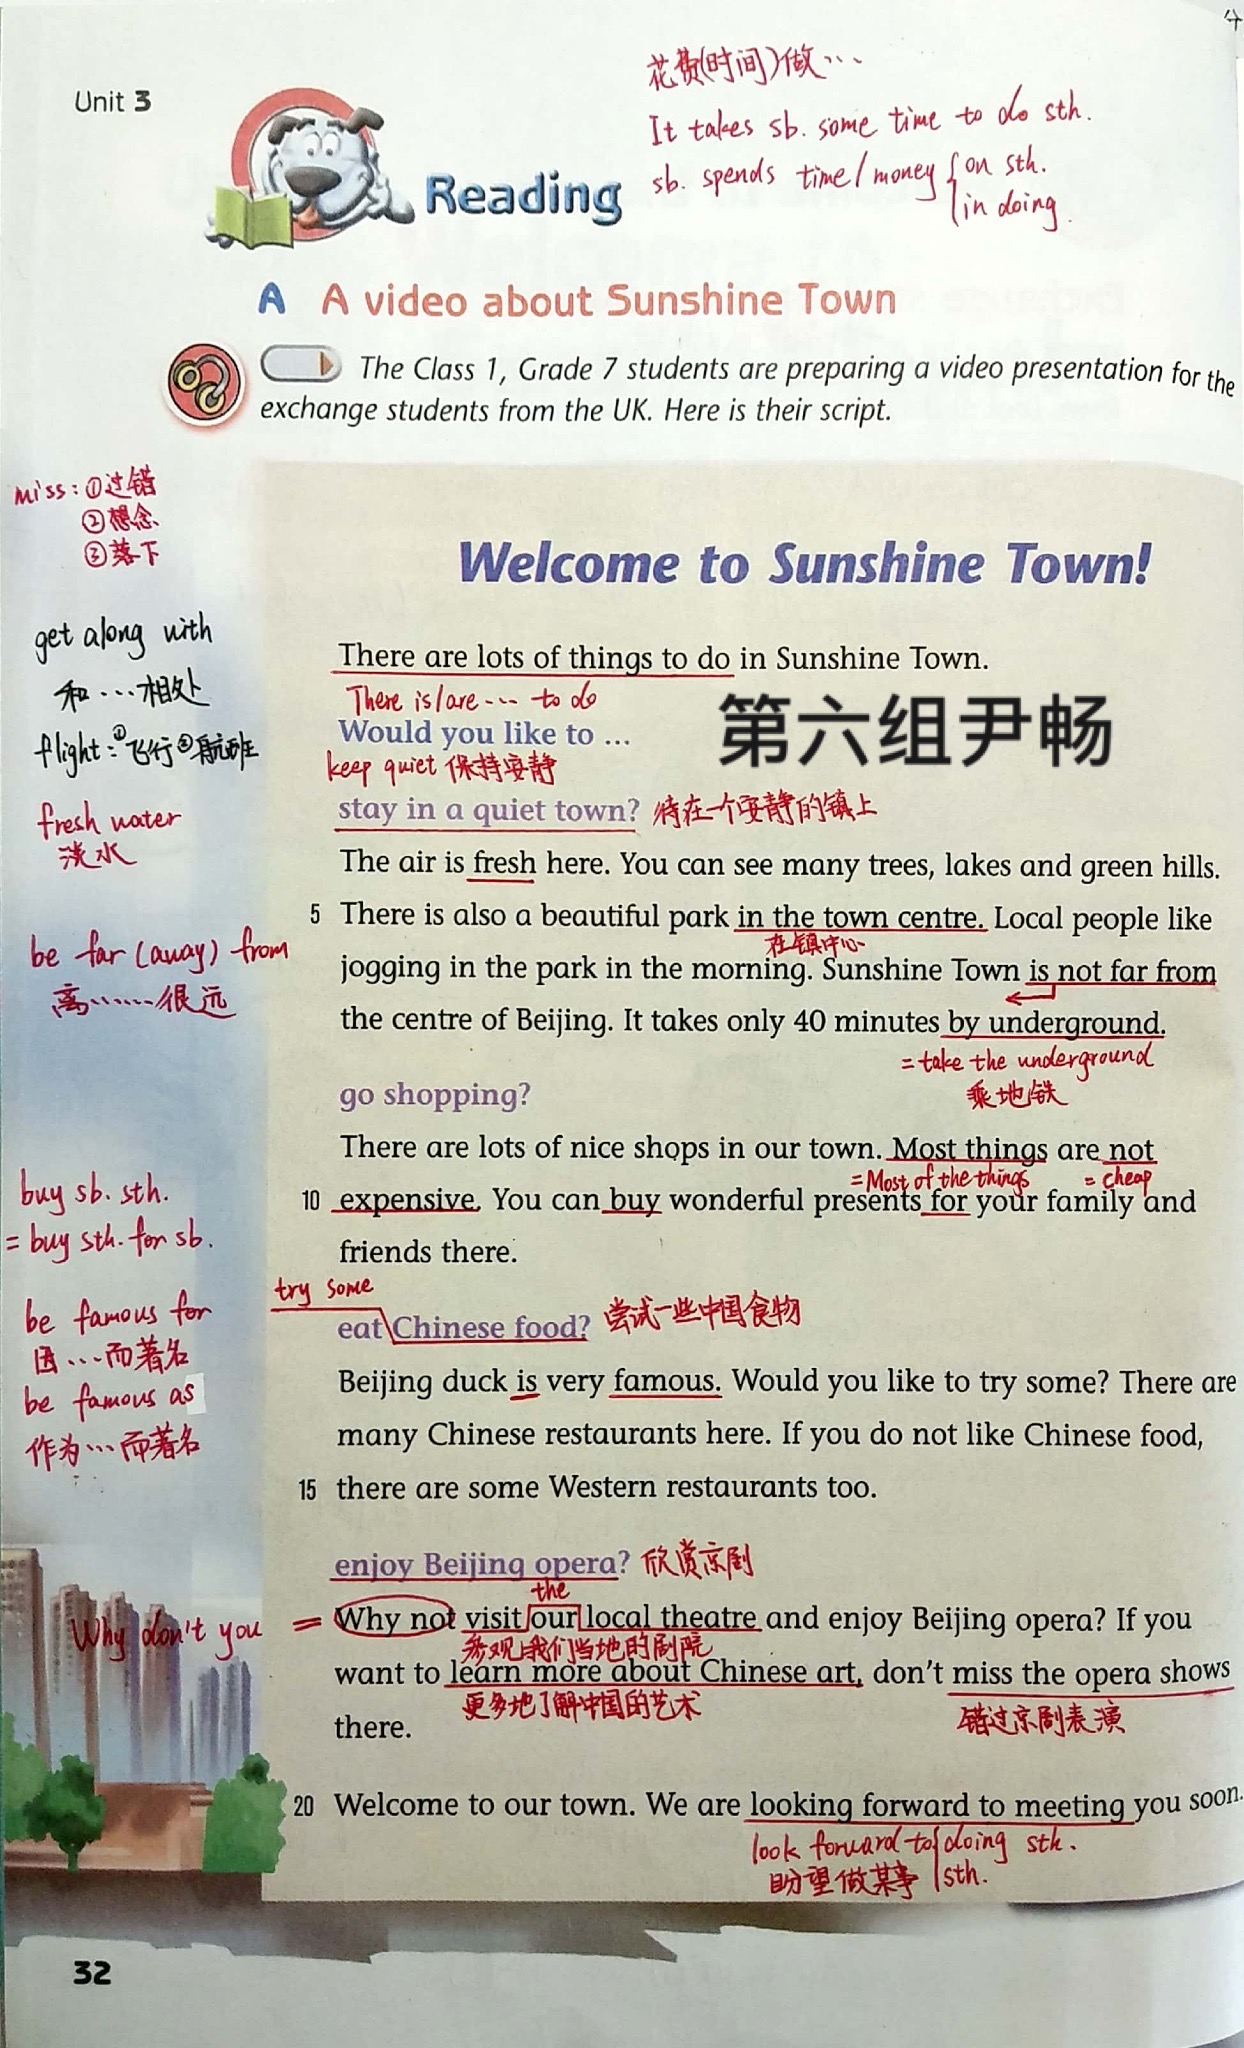 Unit 3
花费(时间)做…
It takes sb. some time to do sth.
sb. spends time/money { on sth.
in doing
Reading
A A video about Sunshine Town
The Class 1, Grade 7 students are preparing a video presentation for the
exchange students from the UK. Here is their script.
miss: ①过错
②想念
③落下
Welcome to Sunshine Town!
get along with
和…相处
flight: ①飞行②航班
There are lots of things to do in Sunshine Town.
There is/are … to do
第六组尹畅
Would you like to ...
keep quiet 保持安静
fresh water
淡水
stay in a quiet town? 待在一个安静的镇上
The air is fresh here. You can see many trees, lakes and green hills.
5 There is also a beautiful park in the town centre. Local people like
在镇中心
be far (away) from
离……很远
jogging in the park in the morning. Sunshine Town is not far from
the centre of Beijing. It takes only 40 minutes by underground.
= take the underground
乘地铁
go shopping?
There are lots of nice shops in our town. Most things are not
=Most of the things = cheap
buy sb. sth.
= buy sth. for sb.
10 expensive. You can buy wonderful presents for your family and
friends there.
be famous for
因…而著名
be famous as
作为…而著名
try some
eat Chinese food? 尝试一些中国食物
Beijing duck is very famous. Would you like to try some? There are
many Chinese restaurants here. If you do not like Chinese food,
15 there are some Western restaurants too.
enjoy Beijing opera? 欣赏京剧
the
Why don't you = Why not visit our local theatre and enjoy Beijing opera? If you
参观我们当地的剧院
want to learn more about Chinese art, don't miss the opera shows
更多地了解中国的艺术 错过京剧表演
there.
20 Welcome to our town. We are looking forward to meeting you soon.
look forward to { doing sth.
盼望做某事 sth.
32